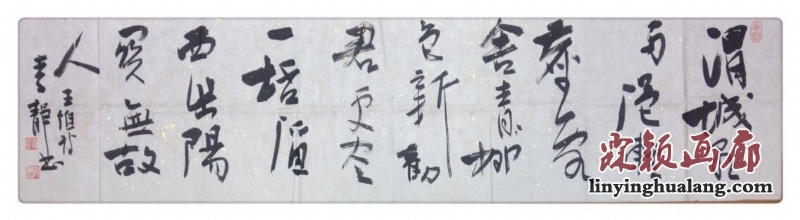 渭城朝
雨浥輕
塵客
舍青柳
色新勸
君更尽
一杯酒
西出陽
関無故
人
王維诗
書
霖颖画廊
linyinghualang.com